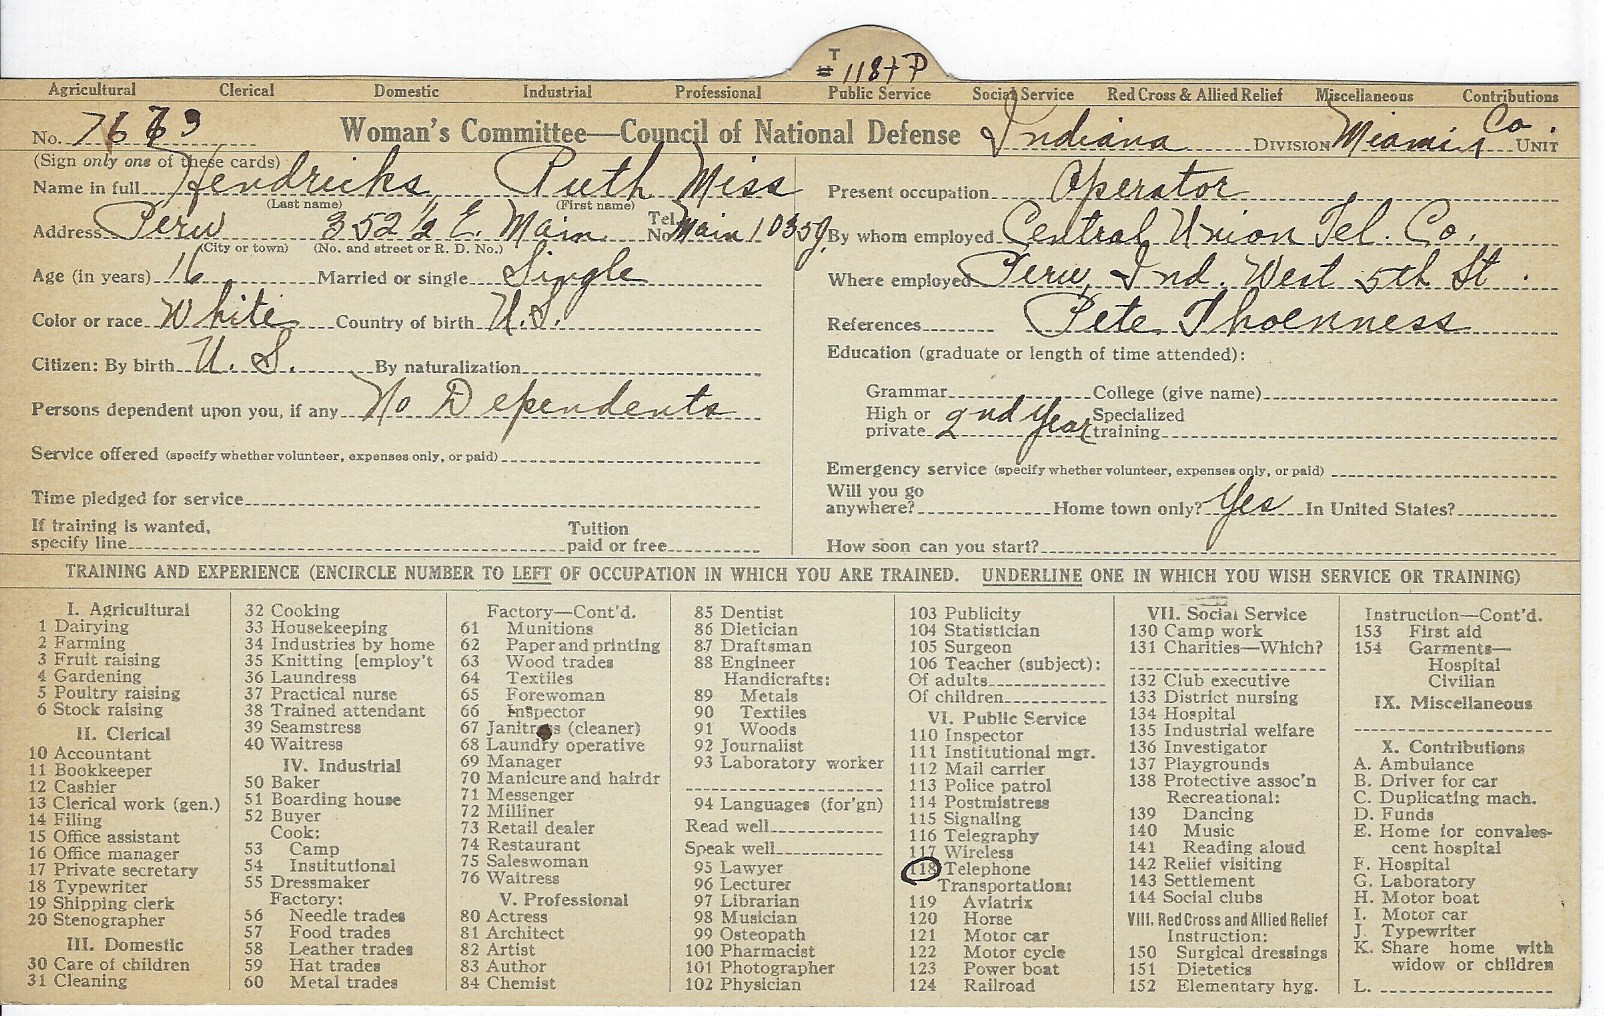 T
# 118 + P
Agricultural Clerical Domestic Industrial Professional Public Service Social Service Red Cross & Allied Relief Miscellaneous Contributions
No. 7673 Woman's Committee—Council of National Defense Indiana DIVISION Miami Co. UNIT
(Sign only one of these cards)
Name in full Hendricks, Ruth Miss
(Last name) (First name)
Address Peru 352 ½ E. Main Tel. No. Main 1035
(City or town) (No. and street or R. D. No.)
Age (in years) 16 Married or single Single
Color or race White Country of birth U.S.
Citizen: By birth U. S. By naturalization
Persons dependent upon you, if any No Dependents
Service offered (specify whether volunteer, expenses only, or paid)
Time pledged for service
If training is wanted, specify line Tuition paid or free
Present occupation Operator
By whom employed Central Union Tel. Co.
Where employed Peru, Ind. West 5th St.
References Pete Thoenness
Education (graduate or length of time attended):
Grammar College (give name)
High or private 2nd Year Specialized training
Emergency service (specify whether volunteer, expenses only, or paid)
Will you go anywhere? Home town only? Yes In United States?
How soon can you start?
TRAINING AND EXPERIENCE (ENCIRCLE NUMBER TO LEFT OF OCCUPATION IN WHICH YOU ARE TRAINED. UNDERLINE ONE IN WHICH YOU WISH SERVICE OR TRAINING)
I. Agricultural
1 Dairying
2 Farming
3 Fruit raising
4 Gardening
5 Poultry raising
6 Stock raising
II. Clerical
10 Accountant
11 Bookkeeper
12 Cashier
13 Clerical work (gen.)
14 Filing
15 Office assistant
16 Office manager
17 Private secretary
18 Typewriter
19 Shipping clerk
20 Stenographer
III. Domestic
30 Care of children
31 Cleaning
32 Cooking
33 Housekeeping
34 Industries by home
35 Knitting [employ't
36 Laundress
37 Practical nurse
38 Trained attendant
39 Seamstress
40 Waitress
IV. Industrial
50 Baker
51 Boarding house
52 Buyer
Cook:
53 Camp
54 Institutional
55 Dressmaker
Factory:
56 Needle trades
57 Food trades
58 Leather trades
59 Hat trades
60 Metal trades
Factory—Cont'd.
61 Munitions
62 Paper and printing
63 Wood trades
64 Textiles
65 Forewoman
66 Inspector
67 Janitress (cleaner)
68 Laundry operative
69 Manager
70 Manicure and hairdr
71 Messenger
72 Milliner
73 Retail dealer
74 Restaurant
75 Saleswoman
76 Waitress
V. Professional
80 Actress
81 Architect
82 Artist
83 Author
84 Chemist
85 Dentist
86 Dietician
87 Draftsman
88 Engineer
Handicrafts:
89 Metals
90 Textiles
91 Woods
92 Journalist
93 Laboratory worker
94 Languages (for'gn)
Read well
Speak well
95 Lawyer
96 Lecturer
97 Librarian
98 Musician
99 Osteopath
100 Pharmacist
101 Photographer
102 Physician
103 Publicity
104 Statistician
105 Surgeon
106 Teacher (subject):
Of adults
Of children
VI. Public Service
110 Inspector
111 Institutional mgr.
112 Mail carrier
113 Police patrol
114 Postmistress
115 Signaling
116 Telegraphy
117 Wireless
118 Telephone
Transportation:
119 Aviatrix
120 Horse
121 Motor car
122 Motor cycle
123 Power boat
124 Railroad
VII. Social Service
130 Camp work
131 Charities—Which?
132 Club executive
133 District nursing
134 Hospital
135 Industrial welfare
136 Investigator
137 Playgrounds
138 Protective assoc'n
Recreational:
139 Dancing
140 Music
141 Reading aloud
142 Relief visiting
143 Settlement
144 Social clubs
VIII. Red Cross and Allied Relief
Instruction:
150 Surgical dressings
151 Dietetics
152 Elementary hyg.
Instruction—Cont'd.
153 First aid
154 Garments—
Hospital
Civilian
IX. Miscellaneous
X. Contributions
A. Ambulance
B. Driver for car
C. Duplicating mach.
D. Funds
E. Home for convales-
cent hospital
F. Hospital
G. Laboratory
H. Motor boat
I. Motor car
J. Typewriter
K. Share home with
widow or children
L.